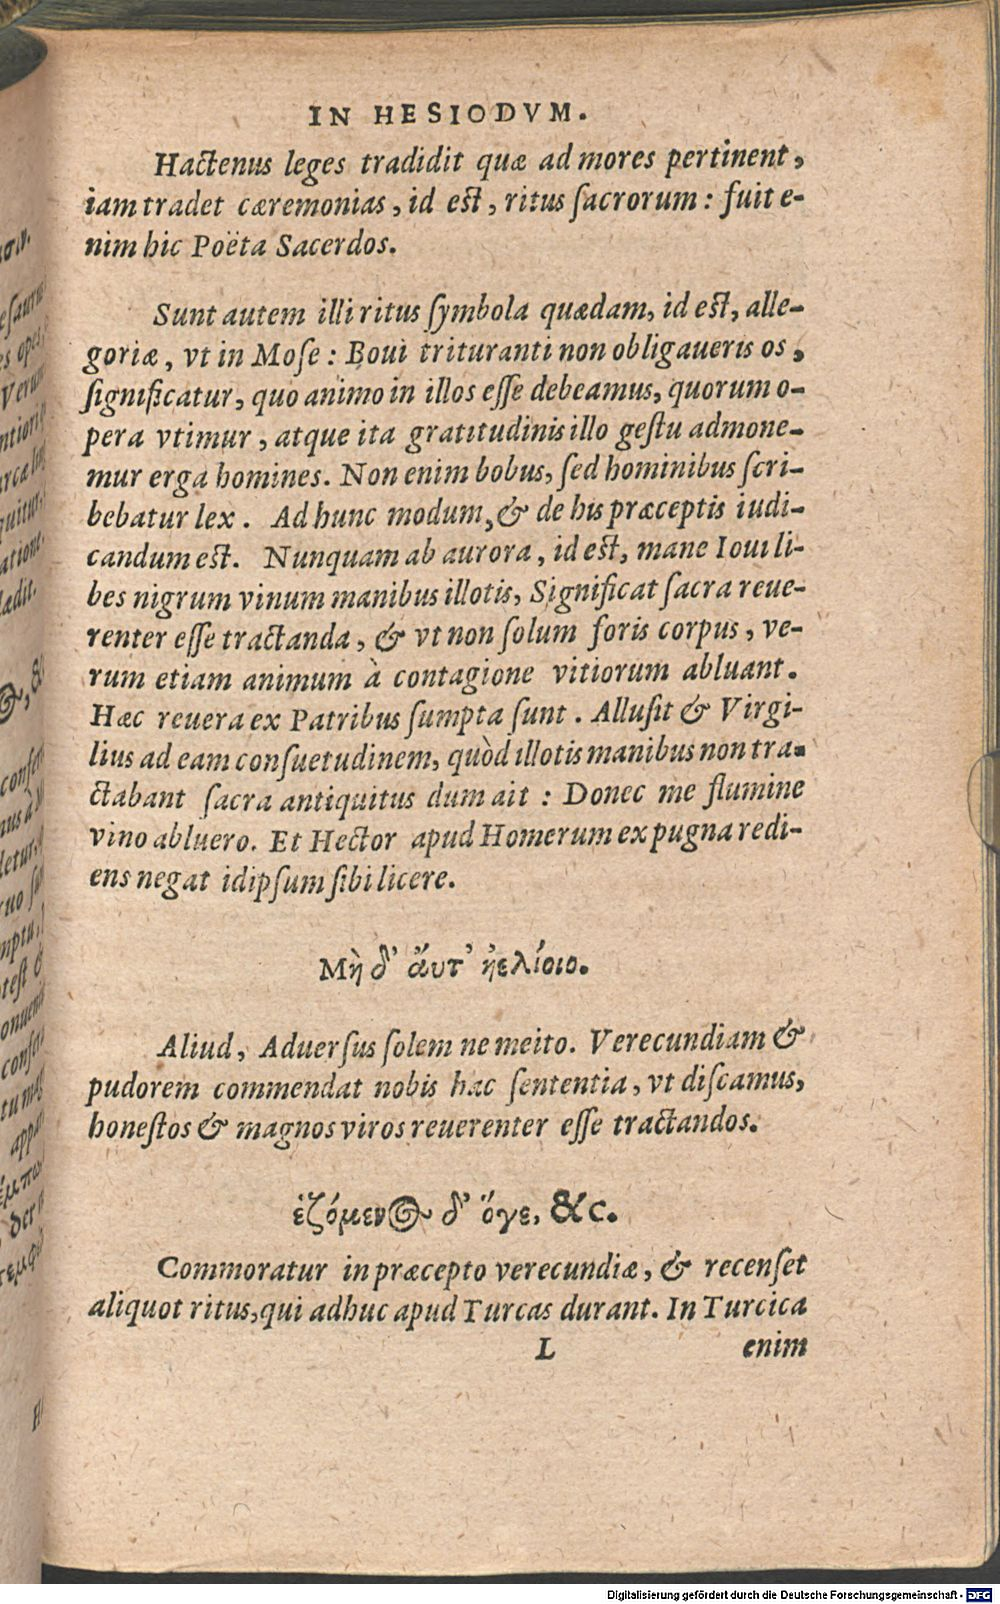 IN HESIODVM.
Hactenus leges tradidit quæ ad mores pertinent,
iam tradet cæremonias, id est, ritus ſacrorum: fuit e-
nim hic Poëta Sacerdos.
Sunt autem illi ritus ſymbola quædam, id est, alle-
goriæ, vt in Moſe: Boui trituranti non obligaueris os,
ſignificatur, quo animo in illos eſſe debeamus, quorum o-
pera vtimur, atque ita gratitudinis illo geſtu admone-
mur erga homines. Non enim bobus, ſed hominibus ſcri-
bebatur lex. Ad hunc modum, & de his præceptis iudi-
candum est. Nunquam ab aurora, id est, mane Ioui li-
bes nigrum vinum manibus illotis, Significat ſacra reue-
renter eſſe tractanda, & vt non ſolum foris corpus, ve-
rum etiam animum à contagione vitiorum abluant.
Hæc reuera ex Patribus ſumpta ſunt. Alluſit & Virgi-
lius ad eam conſuetudinem, quòd illotis manibus non tra-
ctabant ſacra antiquitus dum ait: Donec me flumine
vino abluero. Et Hector apud Homerum ex pugna redi-
ens negat idipſum ſibi licere.
Μὴ δ' ἄυτ' ἠελίοιο.
Aliud, Aduerſus ſolem ne meito. Verecundiam &
pudorem commendat nobis hac ſententia, vt diſcamus,
honeſtos & magnos viros reuerenter eſſe tractandos.
ἑζόμενος δ' ὅγε, &c.
Commoratur in præcepto verecundiæ, & recenſet
aliquot ritus, qui adhuc apud Turcas durant. In Turcica
L enim
ſin.
Verum
ladit.
Digitalisierung gefördert durch die Deutsche Forschungsgemeinschaft - DFG